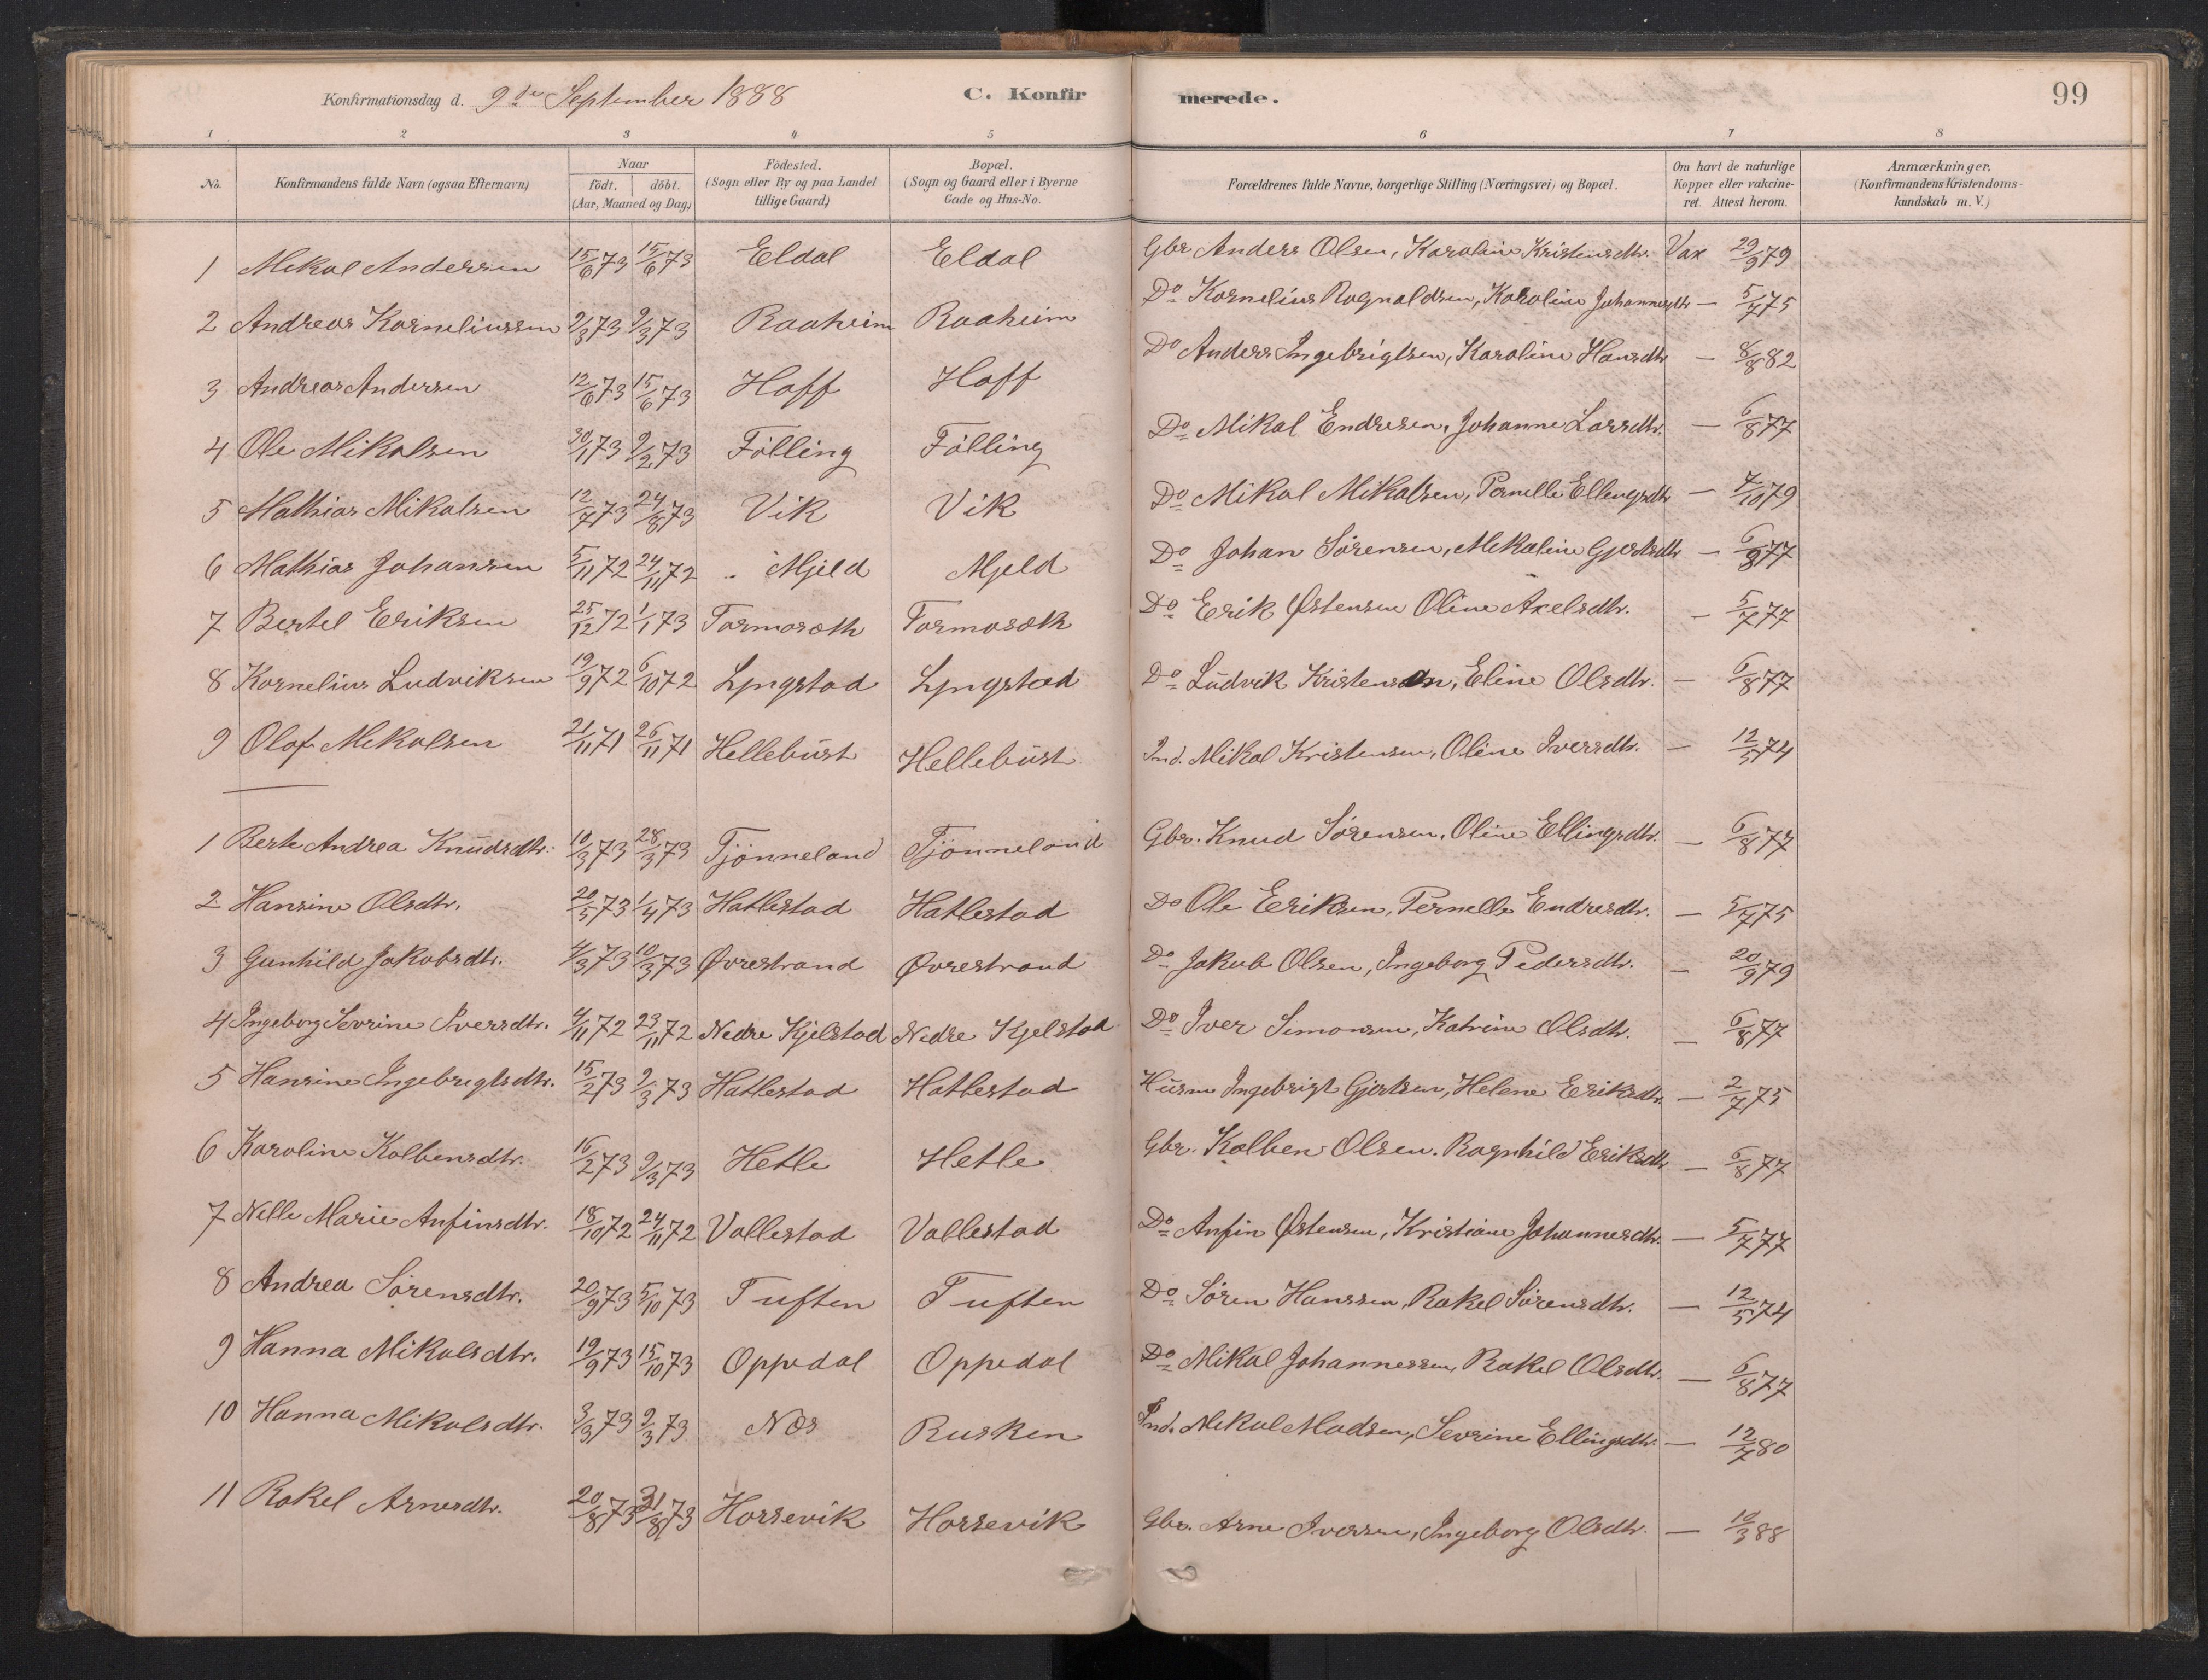 Konfirmationsdag d. 9de September 1888 C. Konfirmerede. 99
1 2 3 4 5 6 7 8
No. Konfirmandens fulde Navn (ogsaa Efternavn) Naar födt. döbt. (Aar, Maaned og Dag) Födested. (Sogn eller By og paa Landet tillige Gaard) Bopæl. (Sogn og Gaard eller i Byerne Gade og Hus-No. Forældrenes fulde Navne, borgerlige Stilling (Næringsvei) og Bopæl. Om havt de naturlige Kopper eller vakcineret. Attest herom. Anmærkninger. (Konfirmandens Kristendomskundskab m. V.)
1 Mikal Andersen 15/6 73 15/6 73 Eldal Eldal Gbr Anders Olsen, Karoline Kristensdtr. Vax 29/9 79
2 Andreas Korneliussen 2/3 73 9/3 73 Raaheim Raaheim Do Kornelius Rognaldsen, Karoline Johannesdtr — 5/7 75
3 Andreas Andersen 12/6 73 15/6 73 Hoff Hoff Do Anders Ingebrigtsen, Karoline Hansdtr — 8/8 82
4 Ole Mikalsen 30/1 73 9/2 73 Fölling Fölling Do Mikal Endresen, Johanne Larsdtr. — 6/8 77
5 Mathias Mikalsen 12/7 73 24/8 73 Vik Vik Do Mikal Mikalsen, Pernelle Ellingsdtr — 7/10 79
6 Mathias Johansen 5/11 72 24/11 72 Mjeld Mjeld Do Johan Sörensen, Mikaline Gjertsdtr — 6/8 77
7 Bertel Eriksen 25/12 72 1/1 73 Tormosæth Tormosæth Do Erik Østensen Oline Axelsdtr. — 5/7 77
8 Kornelius Ludviksen 19/9 72 6/10 72 Lyngstad Lyngstad Do Ludvik Kristensen, Eline Olsdtr. — 6/8 77
9 Olaf Mikalsen 21/11 71 26/11 71 Hellebust Hellebust Ind. Mikal Kristensen, Oline Iversdtr. — 12/5 74
1 Berte Andrea Knudsdtr. 10/3 73 28/3 73 Tjönneland Tjönneland Gbr. Knud Sörensen, Oline Ellingsdtr. — 6/8 77
2 Hansine Olsdtr. 20/5 73 1/4 73 Hatlestad Hatlestad Do Ole Eriksen, Pernelle Endresdtr. — 5/7 75
3 Gunhild Jakobsdtr. 4/3 73 10/3 73 Øvrestrand Øvrestrand Do Jakob Olsen, Ingeborg Pedersdtr. — 20/9 79
4 Ingeborg Sevrine Iversdtr. 4/11 72 23/11 72 Nedre Kjelstad Nedre Kjelstad Do Iver Simonsen, Katrine Olsdtr. — 6/8 77
5 Hansine Ingebrigtsdtr. 15/2 73 9/3 73 Hatlestad Hatlestad Husm Ingebrigt Gjertsen, Helene Eriksdtr. — 2/7 75
6 Karoline Kolbensdtr. 16/2 73 9/3 73 Hetle Hetle Gbr. Kolben Olsen. Ragnhild Eriksdtr — 6/8 77
7 Nelle Marie Anfinsdtr. 18/10 72 24/11 72 Vallestad Vallestad Do Anfin Østensen, Kristiane Johannesdtr. — 5/7 77
8 Andrea Sörensdtr. 20/9 73 5/10 73 Tuften Tuften Do Sören Hanssen, Rakel Sörensdtr. — 12/5 74
9 Hanna Mikalsdtr. 19/9 73 15/10 73 Oppedal Oppedal Do Mikal Johannessen, Rakel Olsdtr. — 6/8 77
10 Hanna Mikalsdtr. 3/3 73 9/3 73 Nes Rusken Ind. Mikal Madsen, Sevrine Ellingsdtr. — 12/7 80
11 Rakel Arnesdtr. 20/8 73 31/8 73 Horsevik Horsevik Gbr. Arne Iversen, Ingeborg Olsdtr. — 10/3 88